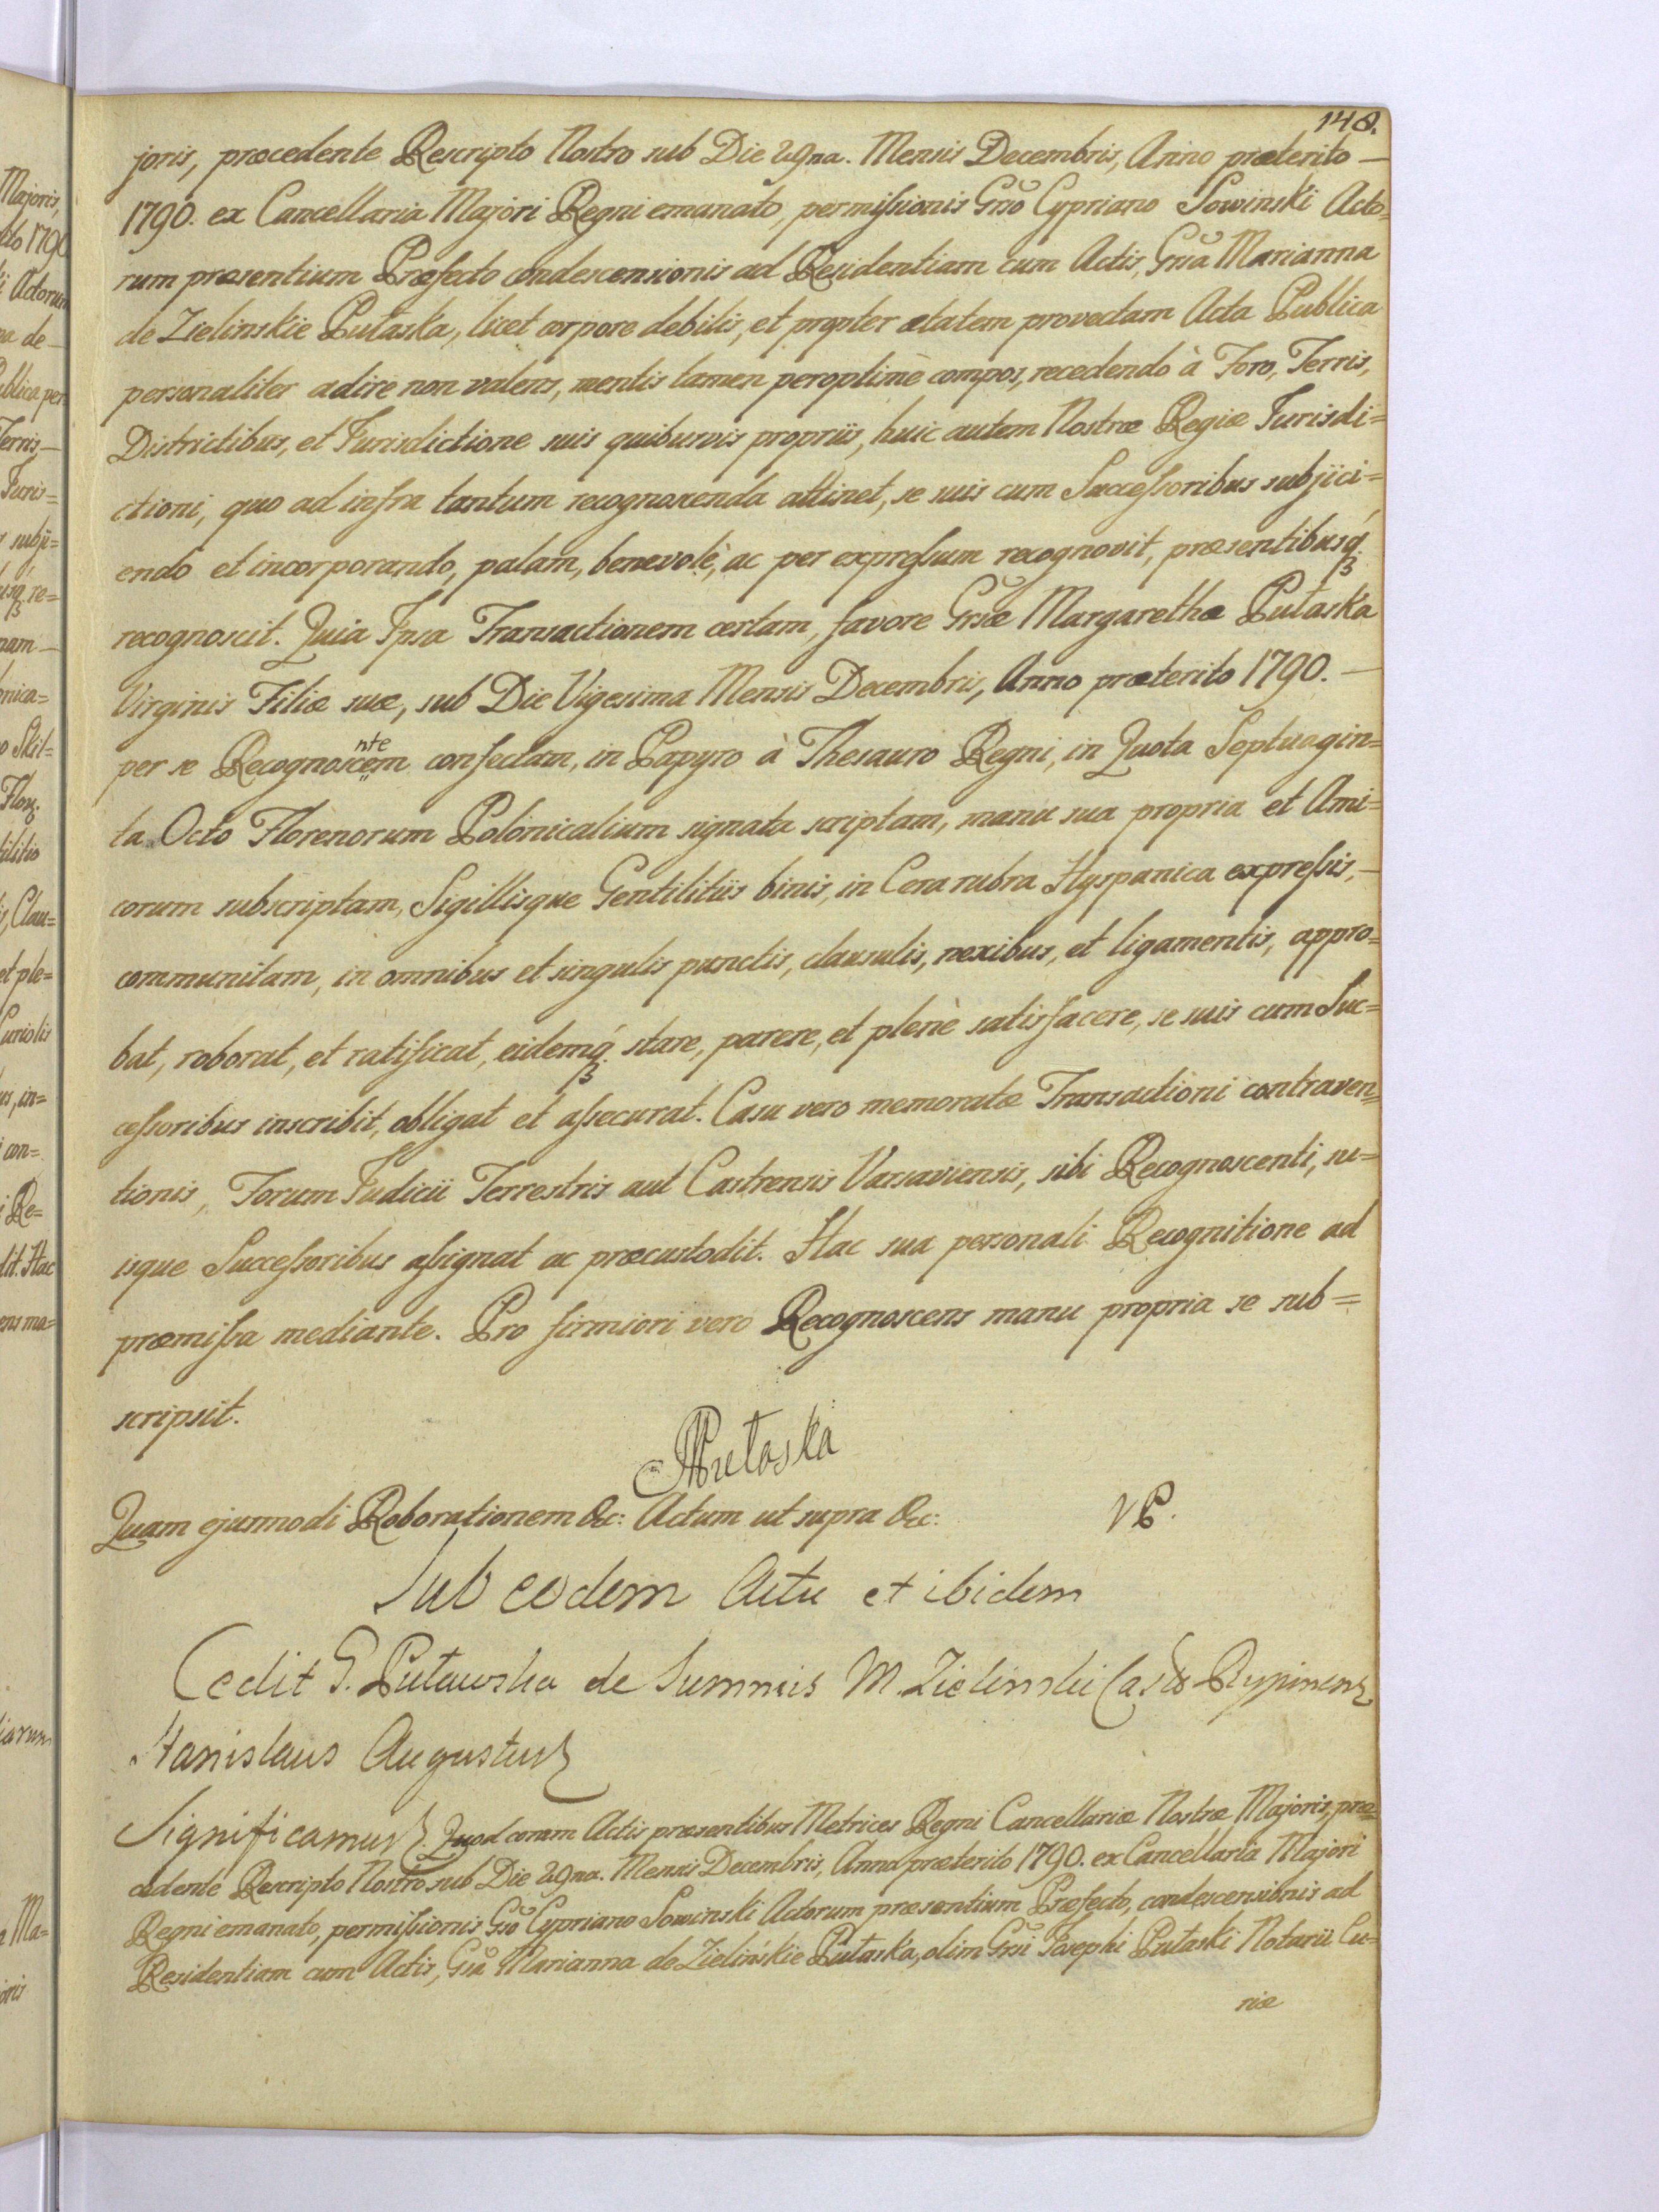 148.
joris, præcedente Rescripto Nostro sub Die 29na. Mensis Decembris, Anno præterito —
1790. ex Cancellaria Majori Regni emanato, permissionis Grso Cypriano Sowinski Acto=
rum præsentium Præfecto condescensionis ad Residentiam cum Actis, Grsa Marianna
de Zielinskie Pułaska, licet corpore debilis, et propter ætatem provectam Acta Publica
personaliter adire non valens, mentis tamen peroptimè compos, recedendo à Foro, Terris,
Districtibus, et Jurisdictione suis quibusvis propriis, huic autem Nostræ Regiæ Jurisdi=
ctioni, quo ad infra tantum recognoscenda attinet, se suis cum Successoribus subjici=
endo et incorporando, palam, benevolè, ac per expressum recognovit, præsentibusq́
recognoscit. Quia Ipsa Transactionem certam, favore Grsæ Margarethæ Pułaska
Virginis Filiæ suæ, sub Die Vigesima Mensis Decembris, Anno præterito 1790. —
per se Recognoscentem confectam, in Papyro à Thesauro Regni, in Quota Septuagin=
ta Octo Florenorum Polonicalium signata scriptam, manu sua propria et Ami=
corum subscriptam, Sigillisque Gentilitiis binis, in Cera rubra Hyspanica expressis, —
communitam, in omnibus et singulis punctis, clausulis, nexibus, et ligamentis, appro=
bat, roborat, et ratificat, eidemq́ stare, parere, et plenè satisfacere, se suis cum Suc=
cessoribus inscribit, obligat et assecurat. Casu vero memoratæ Transactioni contraven=
tionis, Forum Judicii Terrestris aut Castrensis Varsaviensis, sibi Recognoscenti, su=
isque Successoribus assignat ac præcustodit. Hac sua personali Recognitione ad
præmissa mediante. Pro firmiori vero Recognoscens manu propria se sub=
scripsit.
MPułaska
Quam ejusmodi Roborationem &c: Actum ut supra &c:
Sub eodem Actu et ibidem
Cedit G. Puławska de Summis M. Zielinski Rypinens
Stanislaus Augustus
Significamus. Quod coram Actis præsentibus Metrices Regni Cancellariæ Nostræ Majoris, præ=
cedente Rescripto Nostro sub Die 29na. Mensis Decembris, Anno præterito 1790. ex Cancellaria Majori
Regni emanato, permissionis Gso Cypriano Sowinski Actorum præsentium Præfecto, condescensionis ad
Residentiam cum Actis, Gsa Marianna de Zielińskie Pułaska, olim Grsi Josephi Pułaski Notarii Cu=
riæ